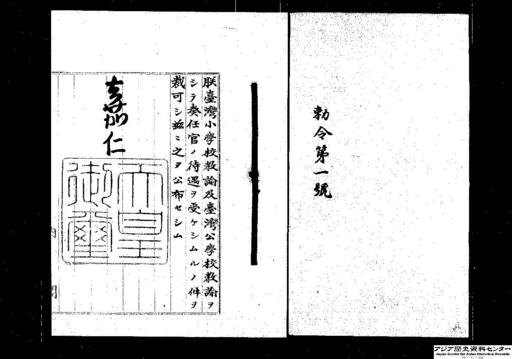 勅令第一號
朕臺灣小學校敎諭及臺灣公學校敎諭ヲ
シテ奏任官ノ待遇ヲ受ケシムルノ件ヲ
裁可シ茲ニ之ヲ公布セシム
嘉仁
天皇
御璽
アジア歴史資料センター
Japan Center for Asian Historical Records